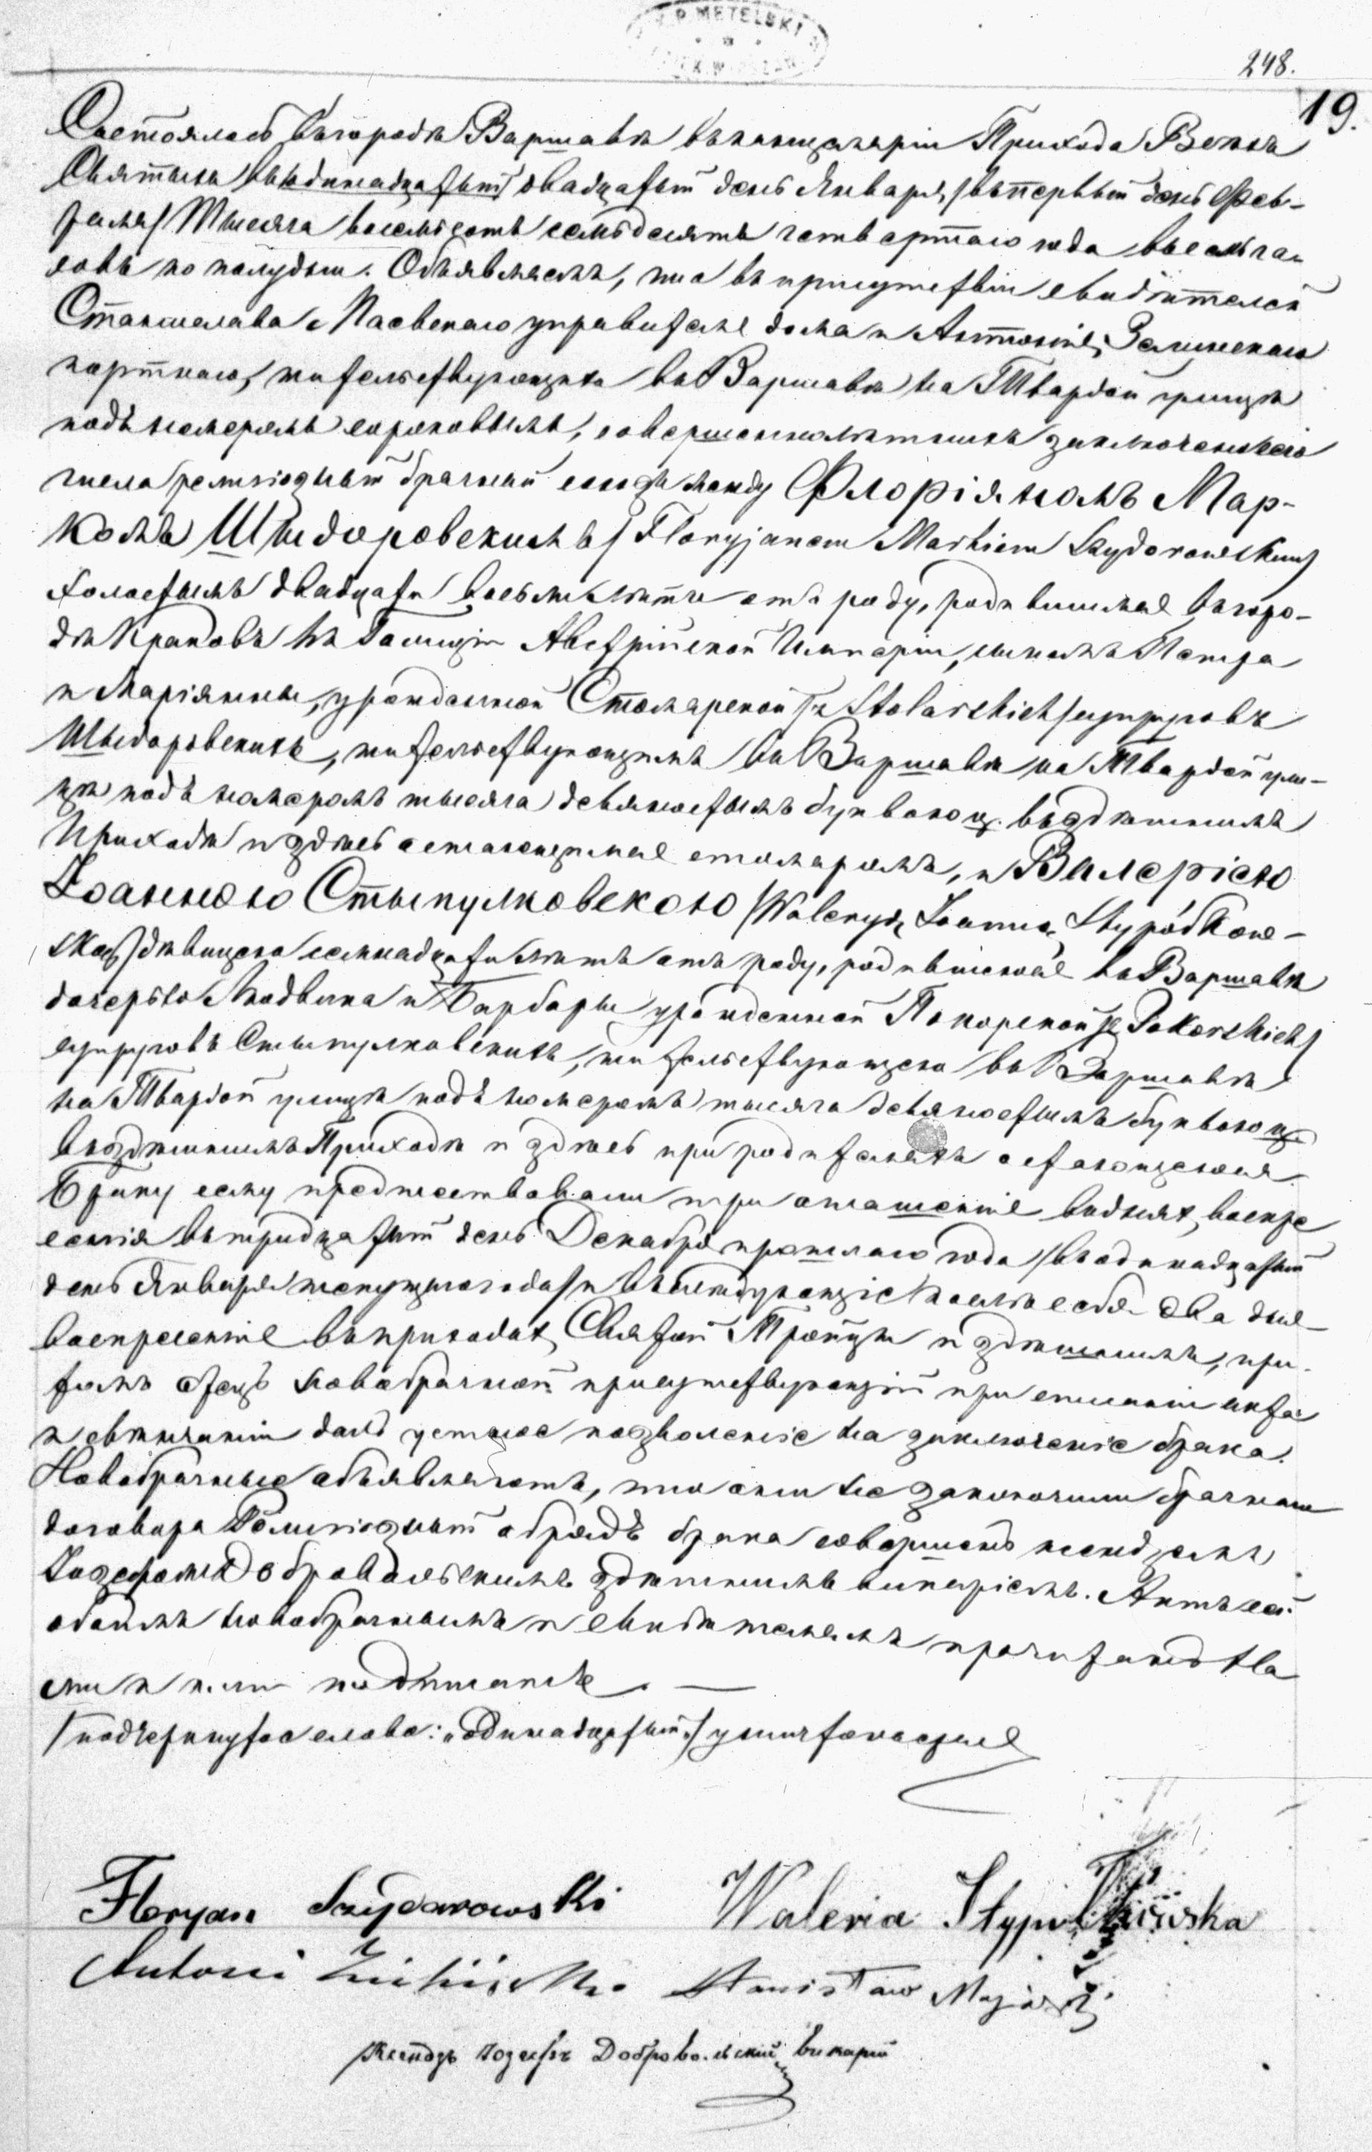 P. METELSKI
248.
19.
Состоялось въ городѣ Варшавѣ въ канцеляріи Прихода Всѣхъ
Святыхъ въ одинадцатый двадцатый день Января /въ первый день Фев-
раля/ Тысяча восемьсотъ семьдесятъ четвертаго года въ ча-
совъ по полудни. Объявляемъ, что въ присутствіи свидѣтелей
Станислава Маевскаго управителя дома и Антонія Зелинскаго
портнаго, жительствующихъ въ Варшавѣ на Твардой улицѣ
подъ номеромъ сороковымъ, совершеннолѣтнихъ заключенъ сего
числа религіозный брачный союзъ между Флоріяномъ Мар-
комъ Шыдоровскимъ /Floryjanem Markiem Szydorowskim/
холостымъ двадцати восьми лѣтъ отъ роду, родившимся въ горо-
дѣ Краковѣ въ Галиціи Австрійской Имперіи, сыномъ Петра
и Маріянны, урожденной Столярской /z Stolarskich/ супруговъ
Шыдоровскихъ, жительствующимъ въ Варшавѣ на Твардой ули-
цѣ подъ номеромъ тысяча девяностымъ буквою ц. въ здѣшнемъ
Приходѣ и здѣсь состоящимся столяромъ, и Валеріею
Іоанною Стыпулковскою /Waleryą Joanną Stypółkow-
ską/ дѣвицею семнадцати лѣтъ отъ роду, родившеюся въ Варшавѣ
дочерью Людвика и Барбары урожденной Покорской /z Pokorskich/
супруговъ Стыпулковскихъ, жительствующею въ Варшавѣ
на Твардой улицѣ подъ номеромъ тысяча девяностымъ буквою ц
въ здѣшнемъ Приходѣ и здѣсь при родителяхъ состоящеюся.
Браку сему предшествовали три оглашенія въ дняхъ воскре
сенія въ тридцатый день Декабря прошлаго года /въ одинадцатый
день Января текущаго года/ и въ слѣдующіе послѣ себя два дня
воскресенія въ приходахъ Святой Тройцы и здѣшнемъ, при-
темъ отецъ новобрачной присутствующій при писаніи акта
и свѣнчаніи далъ устное позволеніе на заключеніе брака.
Новобрачные объявляютъ, что они не заключили брачнаго
договора Религіозный обрядъ брака совершенъ ксендзомъ
Іозефомъ Добровольскимъ здѣшнимъ викаріемъ. Актъ сей
обоимъ новобрачнымъ и свидѣтелямъ прочитанъ На
ми и ими подписанъ.
/подчеркнутое слово: „одинадцатый“/ уничтожается
Floryan Szydorowski Waleria Stypułkowska
Antoni Zieliński Stanisław Majewski
Ксендзъ Іозефъ Добровольскій викарій